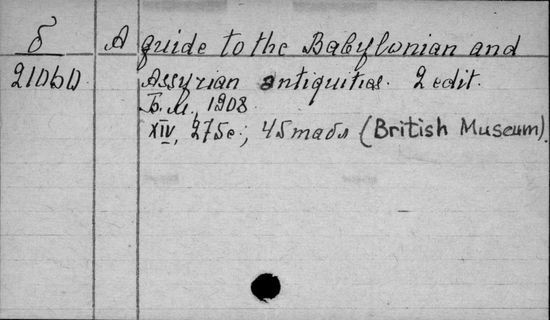 б A guide to the Babylonian and
21060 Assyrian antiquities. 2 edit.
Б. м., 1908.
XIV, 275 с.; 45 табл (British Museum).